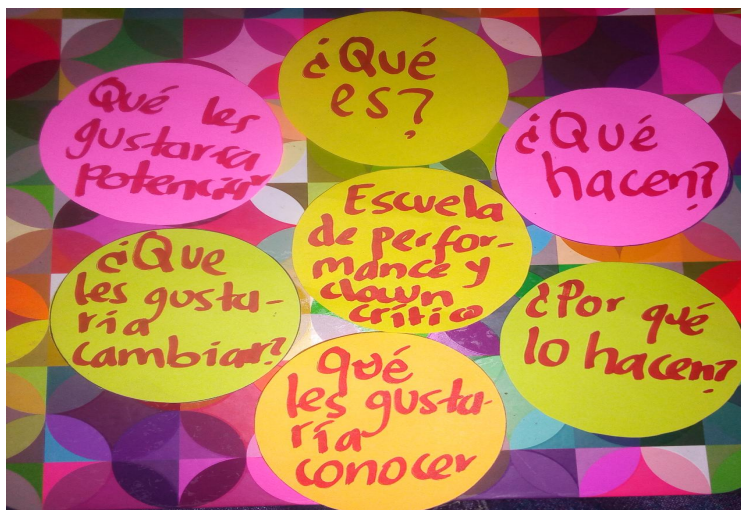 ¿Qué
es?
Qué les
gustaría
potenciar
¿Qué
hacen?
Escuela
de perfor-
mance y
clown
crítico
¿Que
les gusta-
ría
cambiar?
¿Por qué
lo hacen?
qué
les gusta-
ría
conocer